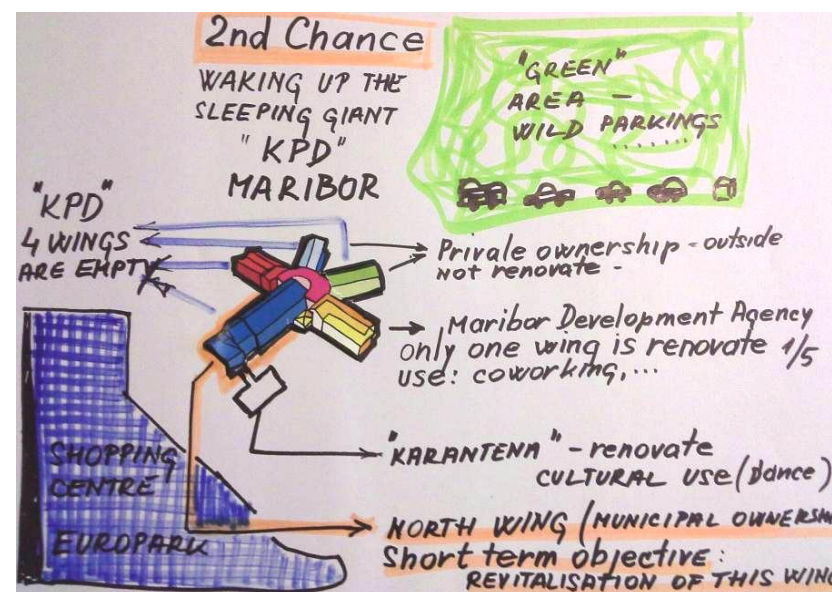 2nd Chance
WAKING UP THE
SLEEPING GIANT
"KPD"
MARIBOR
"GREEN"
AREA -
WILD PARKINGS
"KPD"
4 WINGS
ARE EMPTY
Private ownership - outside
not renovate -
Maribor Development Agency
only one wing is renovate 1/5
use: coworking,...
"KARANTENA" - renovate
CULTURAL USE (Dance)
SHOPPING
CENTRE
EUROPARK
NORTH WING (MUNICIPAL OWNERSH
Short term objective:
REVITALISATION OF THIS WING